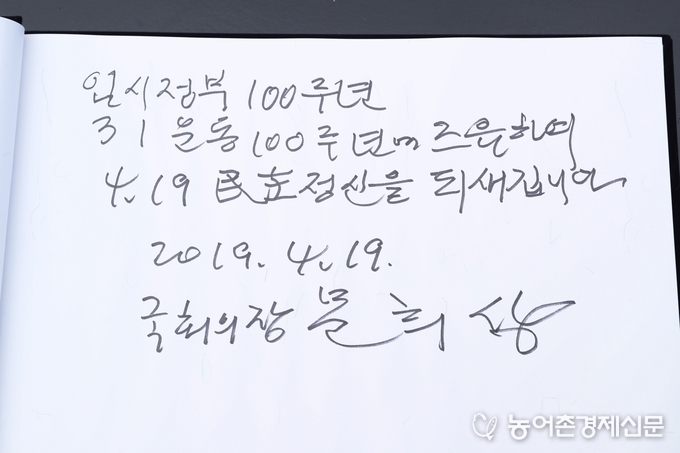 임시정부 100주년
3 1 운동 100주년에 즈음하여
4.19 民主정신을 되새깁니다
2019. 4. 19.
국회의장 문 희 상
농어촌경제신문